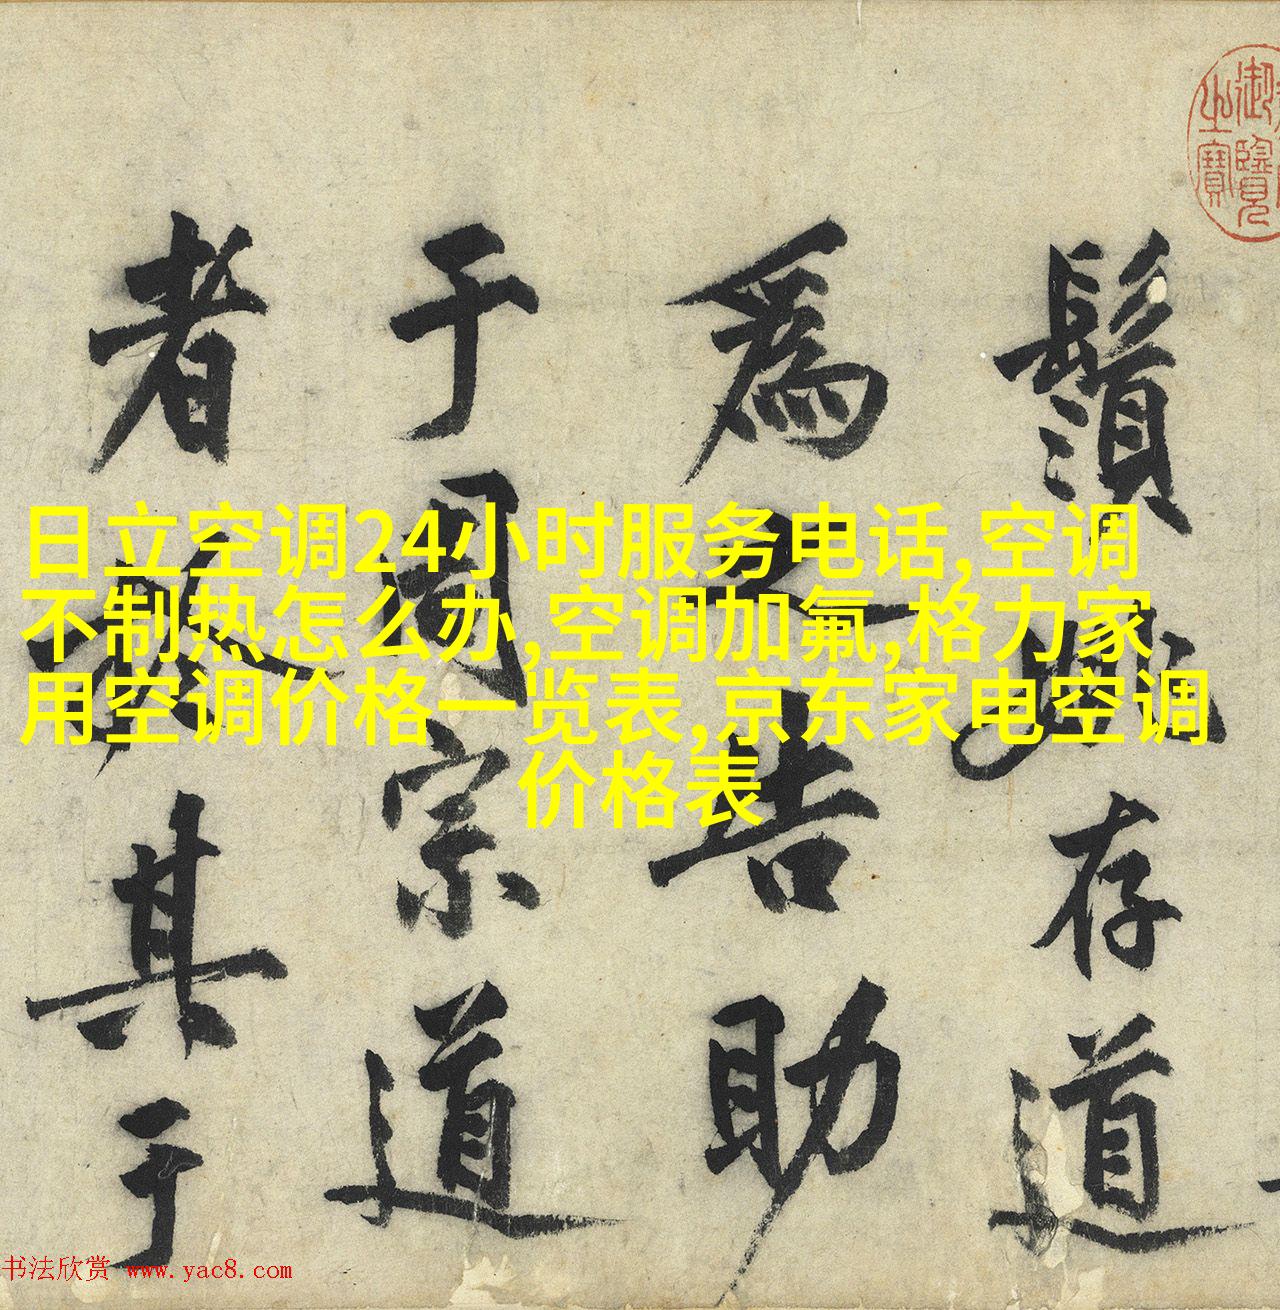 御覽
之寶
鬚姚存道
為之告助
于周宗道
者於其于
日立空调24小时服务电话,空调
不制热怎么办,空调加氟,格力家
用空调价格一览表,京东家电空调
价格表
书法欣赏 www.yac8.com